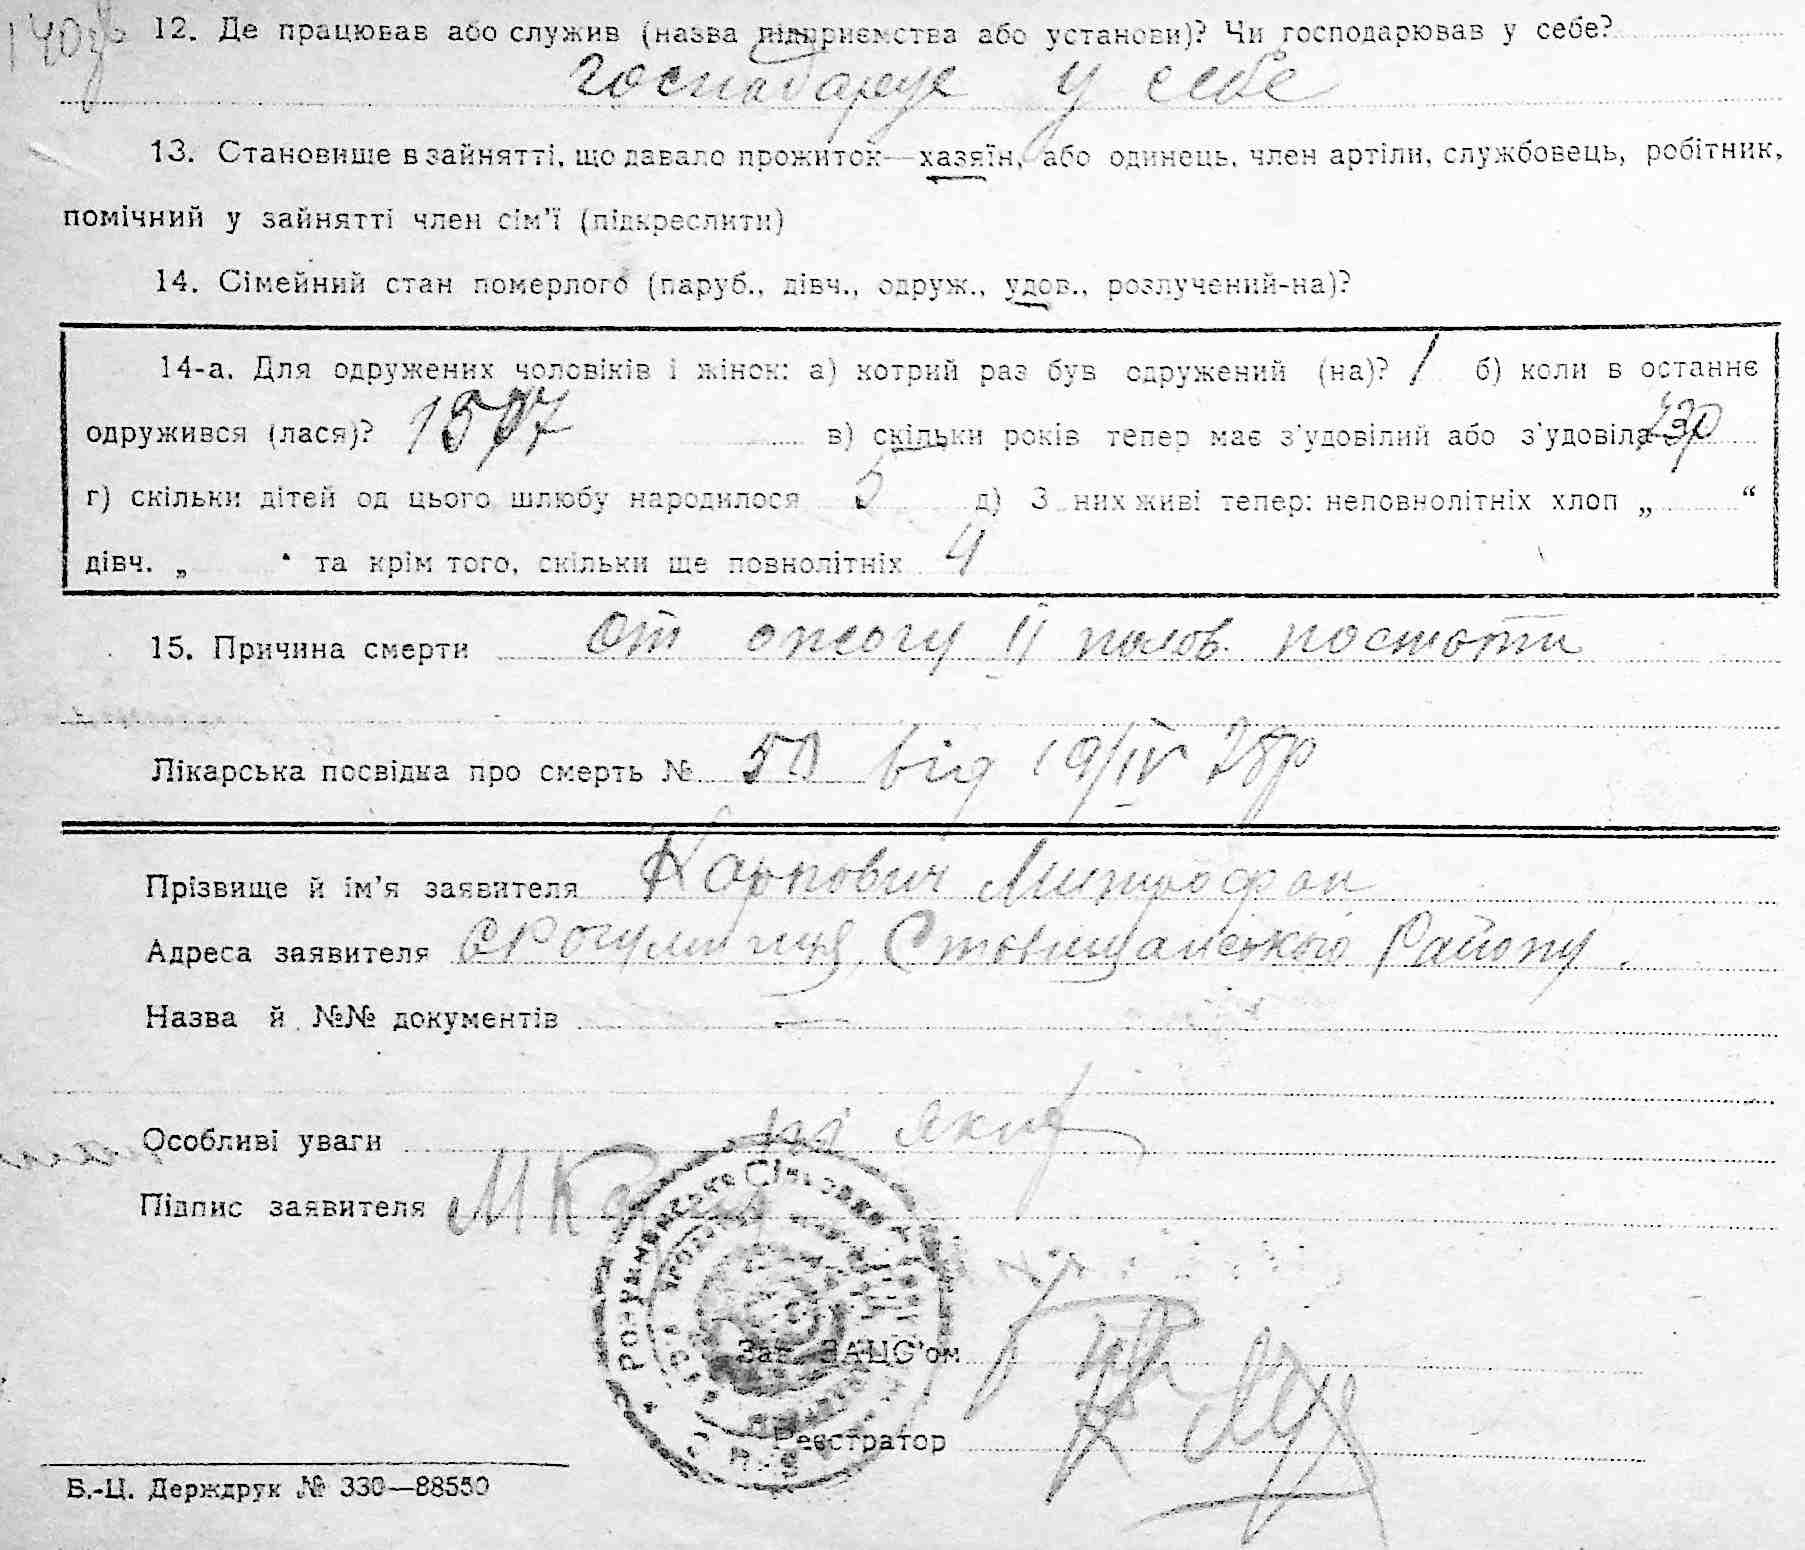 12. Де працював або служив (назва підприємства або установи)? Чи господарював у себе?
господарує у себе
13. Становище в зайнятті, що давало прожиток—хазяїн, або одинець, член артіли, службовець, робітник,
помічний у зайнятті член сім'ї (підкреслити)
14. Сімейний стан померлого (паруб., дівч., одруж., удов., розлучений-на)?
14-а. Для одружених чоловіків і жінок: а) котрий раз був одружений (на)? 1 б) коли в останнє
одружився (лася)? в) скільки років тепер має з'удовілий або з'удовіла
г) скільки дітей од цього шлюбу народилося 5 д) З них живі тепер: неповнолітніх хлоп „ “
дівч. „ “ та крім того, скільки ще повнолітніх 4
15. Причина смерти От ожогу II полов.
Лікарська посвідка про смерть № 50 від 19/IV 28р
Прізвище й ім'я заявителя Карпович Митрофан
Адреса заявителя с Рогуминця, Ставищанського Району.
Назва й №№ документів —
Особливі уваги
Підпис заявителя МКар
Зав. ЗАЦС'ом
Реєстратор
Б.-Ц. Держдрук № 330—88550